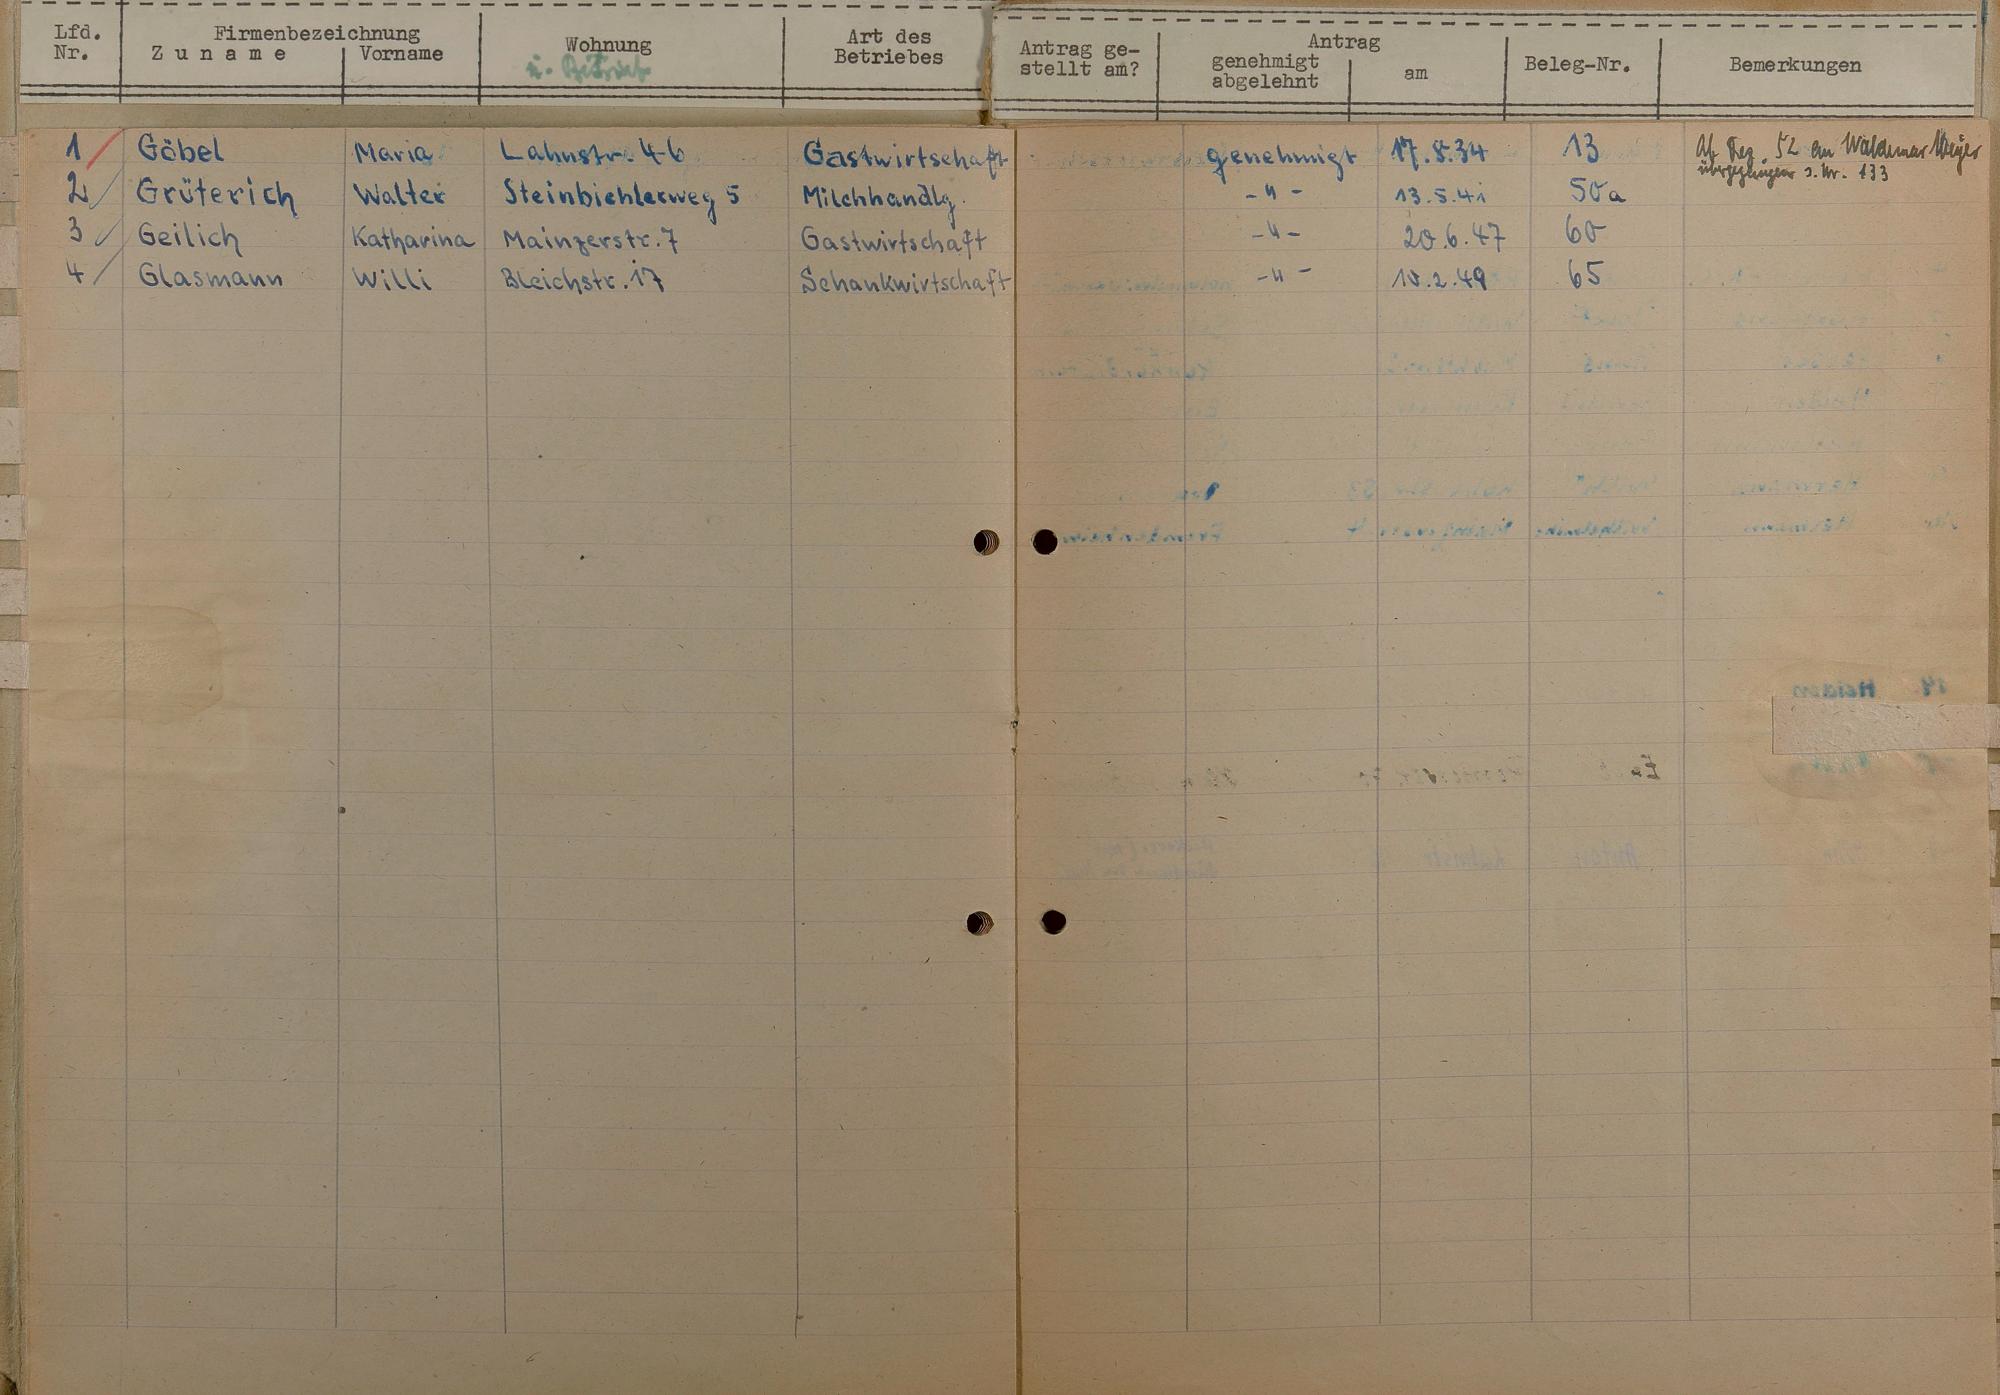 Lfd. Nr. Firmenbezeichnung Zuname Vorname Wohnung u. Betrieb Art des Betriebes Antrag ge-stellt am? Antrag genehmigt abgelehnt am Beleg-Nr. Bemerkungen
1 Göbel Maria Lahnstr. 46 Gastwirtschaft genehmigt 17.8.34 13 Ab Dez. 52 an Waldemar
übergegangen s. Nr. 133
2 Grüterich Walter Steinbiehlerweg 5 Milchhandlg. -"- 13.5.41 50a
3 Geilich Katharina Mainzerstr. 7 Gastwirtschaft -"- 20.6.47 60
4 Glasmann Willi Bleichstr. 17 Schankwirtschaft -"- 10.2.49 65